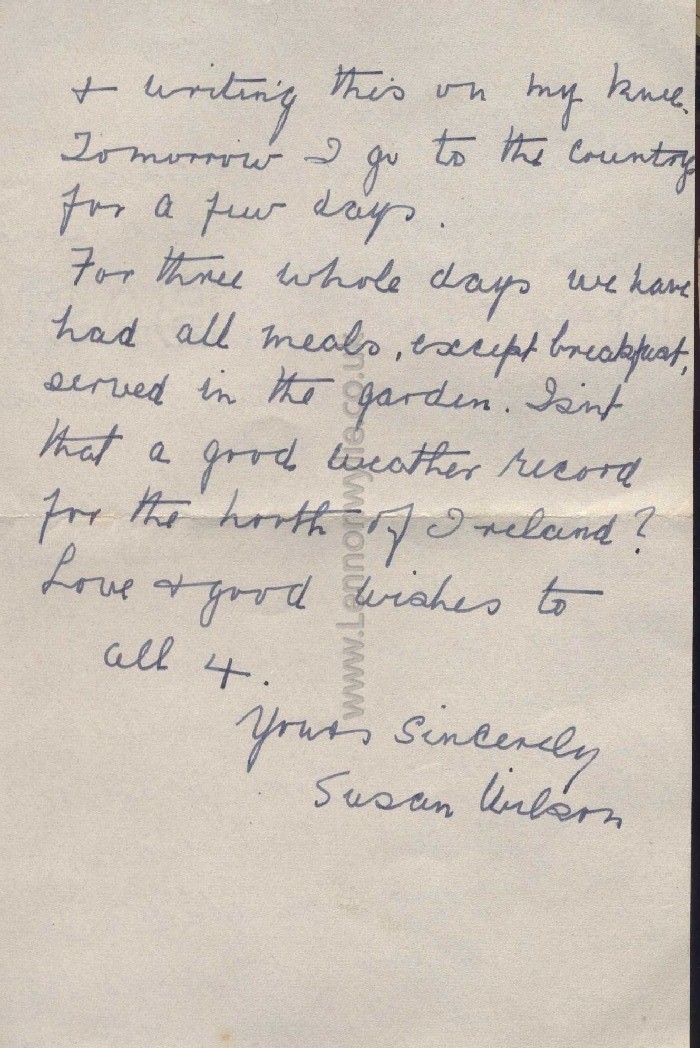 & writing this on my knee.
Tomorrow I go to the country
for a few days.
For three whole days we have
had all meals, except breakfast,
served in the garden. Isnt
that a good weather record
for the north of Ireland?
Love & good wishes to
all 4.
Yours Sincerely
Susan Wilson
www.Lennonwylie.co.uk